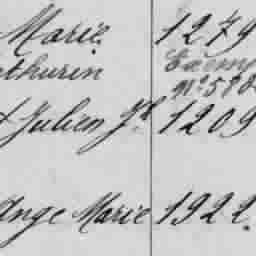 Marie 1279
thurin Exemp
N° 578
Julien Jh 1209
Ange Marie 1922.